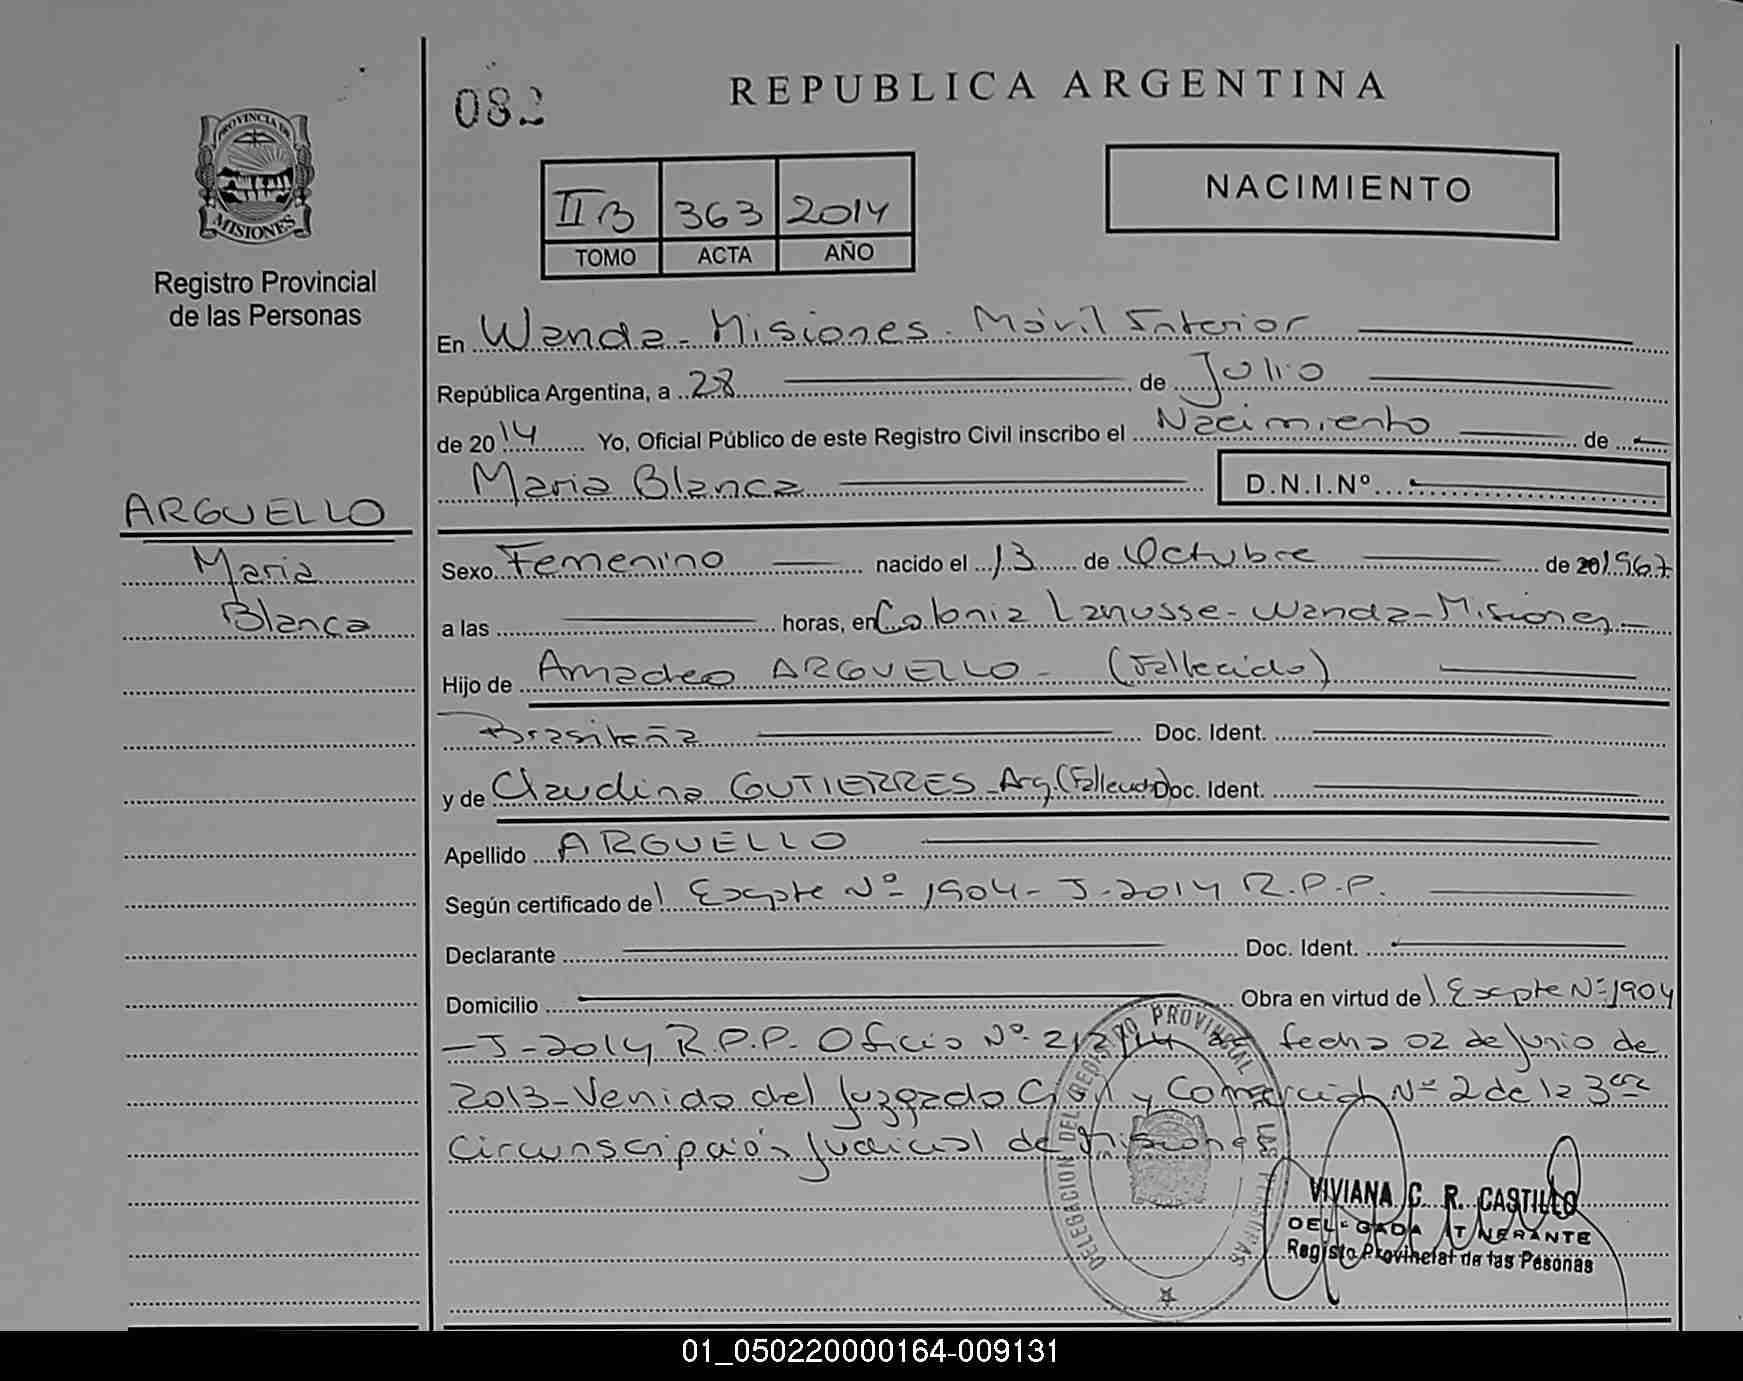 082
REPUBLICA ARGENTINA
PROVINCIA DE
MISIONES
Registro Provincial
de las Personas
IIB 363 2014
TOMO ACTA AÑO
NACIMIENTO
En Wanda - Misiones - Móvil Interior
República Argentina, a 28 de Julio
de 2014 Yo, Oficial Público de este Registro Civil inscribo el Nacimiento de
Maria Blanca D.N.I.Nº
ARGUELLO
Maria
Blanca
Sexo Femenino nacido el 13 de Octubre de 201967
a las horas, en Colonia Lanusse - Wanda - Misiones
Hijo de Amadeo ARGUELLO - (Fallecido)
Brasileña Doc. Ident.
y de Claudina GUTIERRES - Arg. (Fallecida) Doc. Ident.
Apellido ARGUELLO
Según certificado de Expte Nº 1904 - J - 2014 R.P.P.
Declarante Doc. Ident.
Domicilio Obra en virtud de Expte Nº 1904
- J - 2014 R.P.P. Oficio Nº 212/14 de fecha 02 de Junio de
2013 - Venido del Juzgado Civil y Comercial Nº 2 de la 3era
Circunscripción Judicial de Misiones
DELEGACION DEL REGISTRO PROVINCIAL DE LAS PERSONAS
VIVIANA C. R. CASTILLO
DELEGADA ITINERANTE
Registo Provincial de las Pesonas
01_050220000164-009131